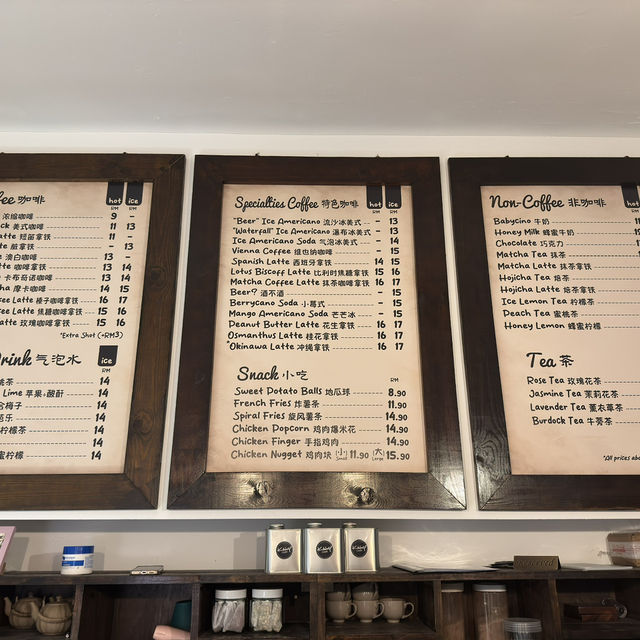 ee 咖啡
hot ice
RM RM
浓缩咖啡 9 -
ck 美式咖啡 11 13
atte 短笛拿铁 11 -
tte 脏拿铁 - 13
e 澳白咖啡 13 -
tte 咖啡拿铁 13 14
卡布奇诺咖啡 13 14
ha 摩卡咖啡 14 15
ee Latte 榛子咖啡拿铁 16 17
ee Latte 焦糖咖啡拿铁 15 16
atte 玫瑰咖啡拿铁 15 16
*Extra Shot (+RM3)
Drink 气泡水
ice
RM
桃茶 14
Lime 苹果,酸酐 14
合梅子 14
芭乐 14
柠檬茶 14
14
蜜柠檬 14
Specialties Coffee 特色咖啡
hot ice
RM RM
"Beer" Ice Americano 流沙冰美式 - 13
"Waterfall" Ice Americano 瀑布冰美式 - 13
Ice Americano Soda 气泡冰美式 - 14
Vienna Coffee 维也纳咖啡 - 15
Spanish Latte 西班牙拿铁 14 15
Lotus Biscoff Latte 比利时焦糖拿铁 15 16
Matcha Coffee Latte 抹茶咖啡拿铁 16 17
Beer? 酒不酒 - 15
Berrycano Soda 小莓式 - 15
Mango Americano Soda 芒芒冰 - 15
Peanut Butter Latte 花生拿铁 16 17
Osmanthus Latte 桂花拿铁 16 17
*Okinawa Latte 冲绳拿铁 16 17
Snack 小吃
RM
Sweet Potato Balls 地瓜球 8.90
French Fries 炸薯条 11.90
Spiral Fries 旋风薯条 14.90
Chicken Popcorn 鸡肉爆米花 14.90
Chicken Finger 手指鸡肉 14.90
Chicken Nugget 鸡肉块 (小) Small 11.90 (大) Large 15.90
Non-Coffee 非咖啡
hot
RM
Babycino 牛奶
Honey Milk 蜂蜜牛奶
Chocolate 巧克力
Matcha Tea 抹茶
Matcha Latte 抹茶拿铁
Hojicha Tea 焙茶
Hojicha Latte 焙茶拿铁
Ice Lemon Tea 柠檬茶
Peach Tea 蜜桃茶
Honey Lemon 蜂蜜柠檬
Tea 茶
Rose Tea 玫瑰花茶
Jasmine Tea 茉莉花茶
Lavender Tea 薰衣草茶
Burdock Tea 牛蒡茶
*All prices abo
Reserved